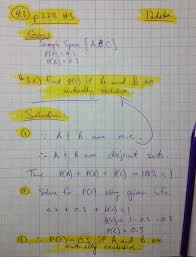 Q3 p.228 #3
12data
Given
Sample Space {A,B,C}
P(A) = 0.2
P(B) = 0.3
Q3.c) Find P(C) if A and B are
mutually exclusive.
Solution
① ∵ A & B are m.e.
∴ A & B are disjoint sets.
Thus P(A) + P(B) + P(C) = 100% = 1
② Solve for P(C) using given info
0.2 + 0.3 + P(C) = 1
P(C) = 1 - 0.2 - 0.3
P(C) = 0.5
③ ∴ P(C) = 0.5 if A and B are
mutually exclusive